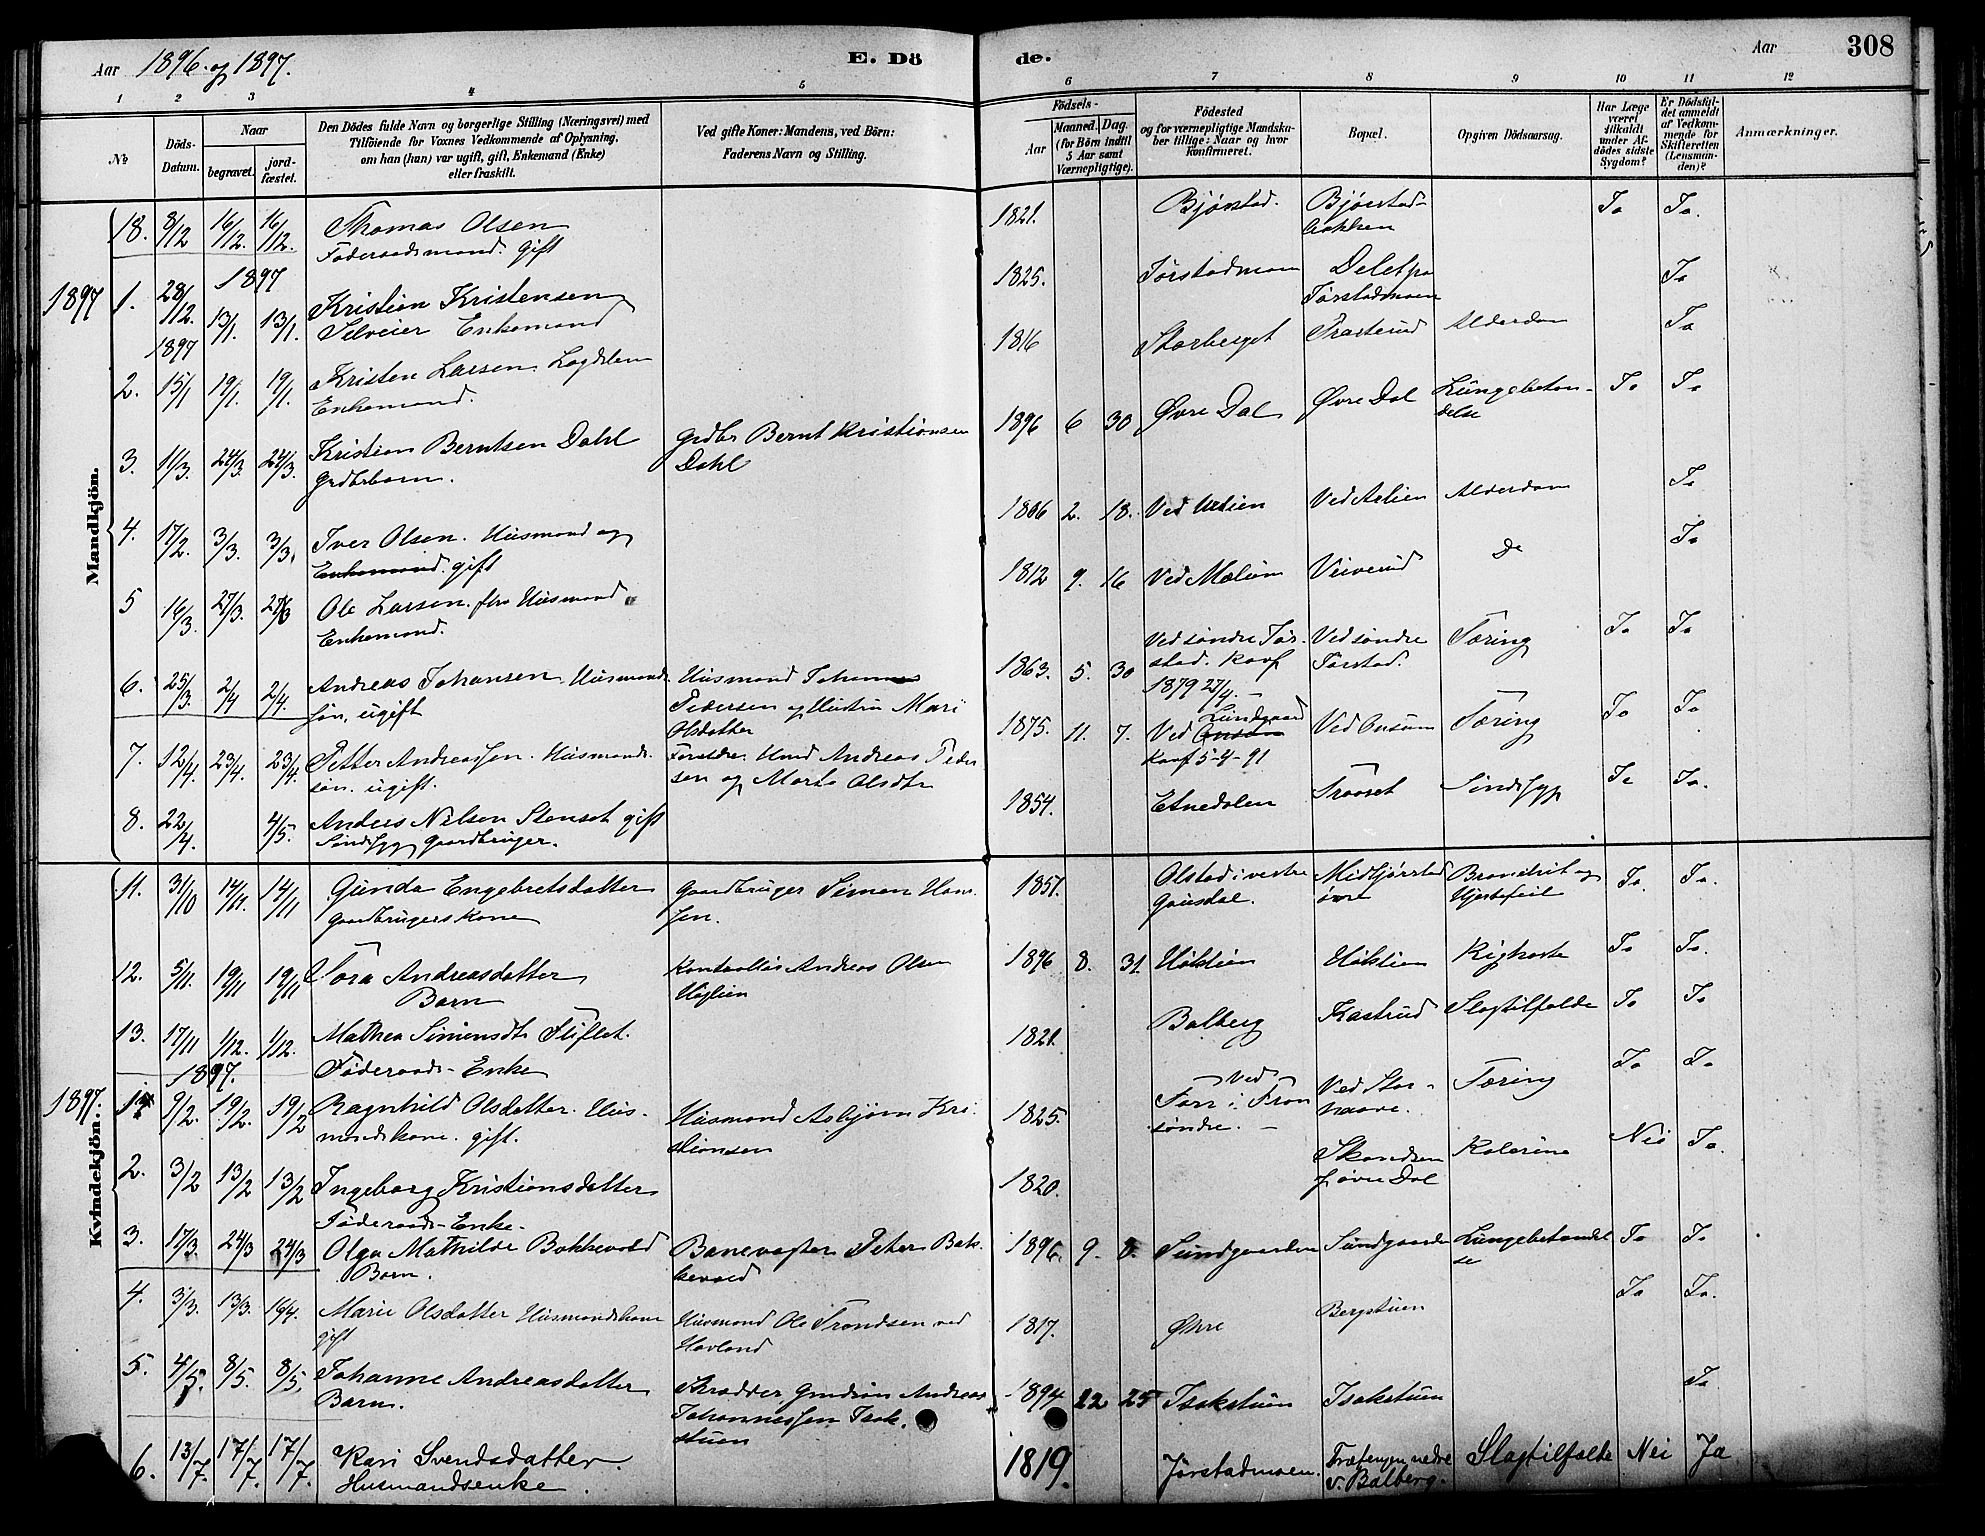 Aar 1896 og 1897.
E. Dö
de.
Aar
308
1 2 3 4 5 6 7 8 9 10 11 12
No
Döds-Datum.
Naar
begravet.
jord-fæstet.
Den Dödes fulde Navn og borgerlige Stilling (Næringsvei) med
Tilföiende for Voxnes Vedkommende af Oplysning,
om han (hun) var ugift, gift, Enkemand (Enke)
eller fraskilt.
Ved gifte Koner: Mandens, ved Börn:
Faderens Navn og Stilling.
Födsels-
Aar
Maaned. Dag.
(for Börn indtil
5 Aar samt
Værnepligtige).
Födested
og for værnepligtige Mandska-
ber tillige: Naar og hvor
konfirmeret.
Bopæl.
Opgiven Dödsaarsag.
Har Læge
været
tilkaldt
under Af-
dödes sidste
Sygdom?
Er Dödsfal-
det anmeldt
af Vedkom-
mende for
Skifteretten
(Lensman-
den)?
Anmærkninger.
Mandkjön.
18. 8/12 16/12. 16/12. Thomas Olsen 1821. Bjørstad. Bjørstad- Ja Ja.
Føderaadsmand. gift bakken
1897
1897 1. 28/12. 13/1. 13/1. Kristian Kristensen 1825. Jørstadmoen Delet på Ja
Selveier Enkemand Jørstadmoen
1897
2. 15/1 19/1. 19/1. Kristen Larsen 1816 Storberget Alderdom Ja
Enkemand.
3. 11/3. 24/3. 24/3. Kristian Berntsen Dahl Grdbr Bernt Kristiansen 1896 6 30 Øvre Dal Øvre Dal Lungebetæn- Ja Ja
Grdbrbarn. Dahl delse
4. 17/2. 3/3. 3/3. Iver Olsen. Husmand og 1806 2. 18. Ved Alderdom Ja
Enkemand. gift
5 16/3. 27/3. 27/3 Ole Larsen. fhv Husmand 1812 9. 16 Ved Mælum Do Ja
Enkemand.
6. 25/3. 2/4 2/4. Andreas Johansen. Husmands- Husmand Johannes 1863. 5. 30 Ved søndre Jør- Ved søndre Tæring Ja Ja
søn. ugift Pedersen og Hustru Mari stad. Konf Jørstad.
Olsdatter 1879 27/4.
7. 12/4. 23/4. 23/4. Petter Andreassen. Husmands- Forældre. Husmd Andreas Peder- 1875. 11. 7. Ved Lundgaard Ved Onsum Tæring Ja Ja
søn. ugift. sen og Marte Olsdtr Konf 5-4-91
8. 22/4. 4/5. Anders Nilsen Stenset gift 1854. Etnedalen Sindssyg Ja Ja.
Sindssyg Gaardbruger.
Kvindekjön.
11. 31/10 14/11. 14/11 Gunda Engebretsdatter Gaardbruger Simen Han- 1851. Olstad i vestre Midtjørstad Brandrit og Ja. Ja.
Gaardbrugerskone sen. Gausdal. øvre Hjertefeil
12. 5/11. 19/11 19/11 Tora Andreasdatter Kontrollør Andreas Olsen 1896 8. 31. Kighoste Ja Ja.
Barn
13. 17/11 1/12. 1/12. Mathea Simensdtr 1821. Balberg Kastrud Slagtilfælde Ja Ja
Føderaads-Enke
1897.
1897. 1 9/2. 19/2. 19/2 Ragnhild Olsdatter. Hus- Husmand Asbjørn Kri- 1825. Ved Ved Stor- Tæring Ja Ja
mandskone. gift. stiansen i Fron søndre. haave.
2. 3/2 13/2 13/2 Ingeborg Kristiansdatter 1820. Skandsen Kolerine Nei Ja.
Føderaads-Enke. p. øvre Dal
3. 17/3 24/3 24/3 Olga Mathilde Bakkevold Banevogter Peter Bak- 1896. 9. 8. Sundgaarden Sundgaarden Lungebetændel- Ja Ja
Barn. kevold se
4. 3/3. 13/3. 16/4. Marie Olsdatter Husmandskone Husmand Ole Trondsen ved 1817. Øhre Bergstuen Ja Ja.
gift Havland
5. 4/5. 8/5. 8/5. Johanne Andreasdatter Skrædder Andreas 1894 12 25 Isakstuen Isakstuen Ja
Barn. Johannessen Isak-
stuen
6. 13/7. 17/7. 17/7. Kari Svendsdatter. 1819. Jørstadmoen. Træfengen nedre Slagtilfælde Nei Ja
Husmandsenke. v. Balberg.